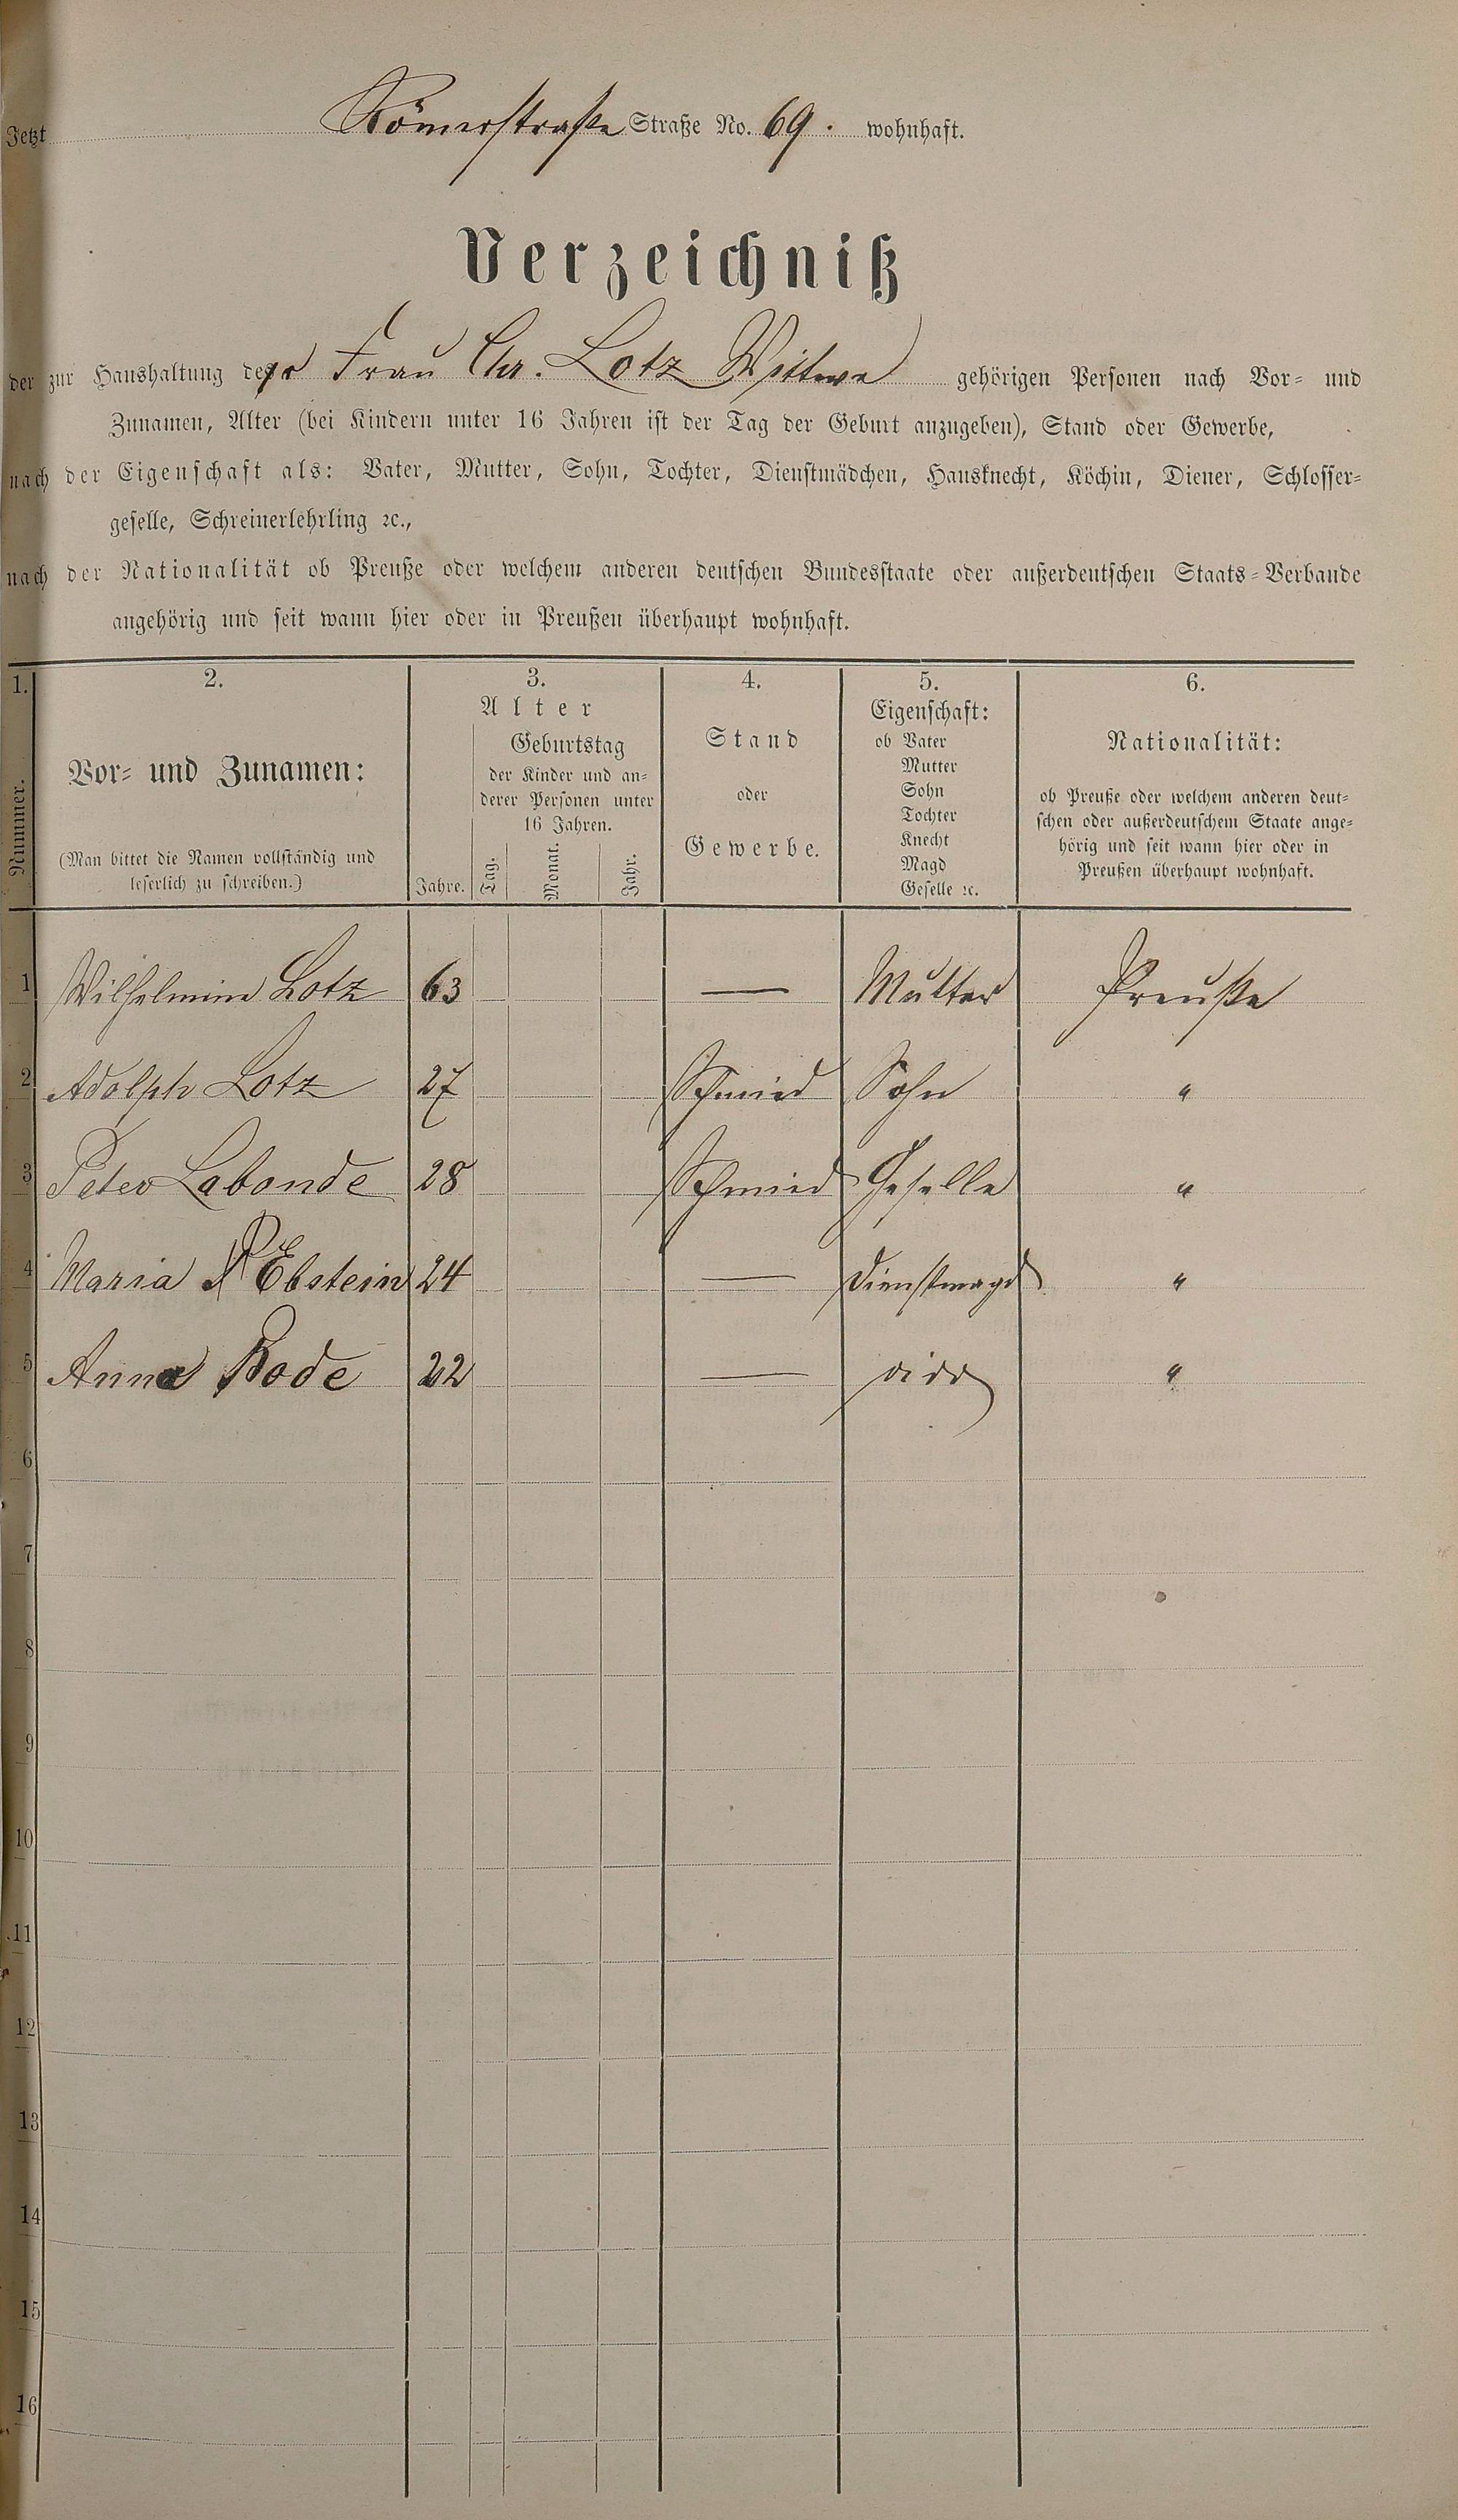 Jetzt Römerstraße Straße No. 69. wohnhaft.
Verzeichniß
der zur Haushaltung der Frau Chr. Lotz Wittwe gehörigen Personen nach Vor- und
Zunamen, Alter (bei Kindern unter 16 Jahren ist der Tag der Geburt anzugeben), Stand oder Gewerbe,
nach der Eigenschaft als: Vater, Mutter, Sohn, Tochter, Dienstmädchen, Hausknecht, Köchin, Diener, Schlosser-
geselle, Schreinerlehrling ꝛc.,
nach der Nationalität ob Preuße oder welchem anderen deutschen Bundesstaate oder außerdeutschen Staats-Verbande
angehörig und seit wann hier oder in Preußen überhaupt wohnhaft.
1.
Nummer.
2.
Vor- und Zunamen:
(Man bittet die Namen vollständig und
leserlich zu schreiben.)
3.
Alter
Jahre.
Geburtstag
der Kinder und an-
derer Personen unter
16 Jahren.
Tag.
Monat.
Jahr.
4.
Stand
oder
Gewerbe.
5.
Eigenschaft:
ob Vater
Mutter
Sohn
Tochter
Knecht
Magd
Geselle ꝛc.
6.
Nationalität:
ob Preuße oder welchem anderen deut-
schen oder außerdeutschem Staate ange-
hörig und seit wann hier oder in
Preußen überhaupt wohnhaft.
1 Wilhelmine Lotz 63 — Mutter Preuße
2 Adolph Lotz 27 Schmied Sohn "
3 Peter Labonde 28 Schmied Geselle "
4 Maria Ebstein 24 — Dienstmagd "
5 Anna Bode 22 — dido "
6
7
8
9
10
11
12
13
14
15
16